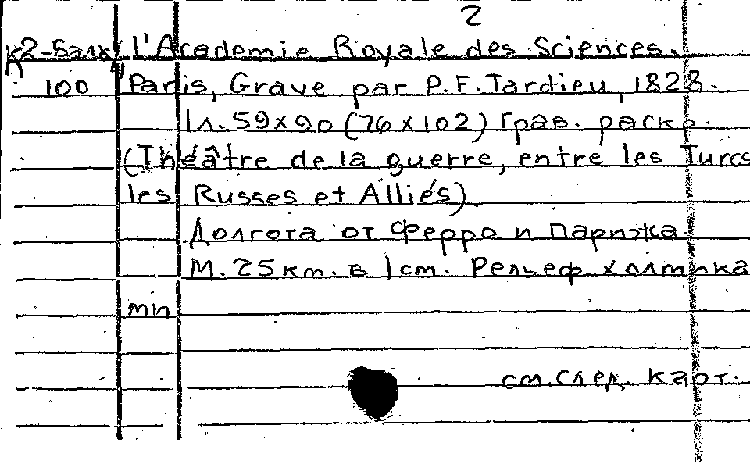 2
К2-Балк l'Academie Royale des Sciences.
100 Paris, Grave par P.F. Tardieu, 1828.
1л. 59x90 (76x102) Грав. раск.
(Théâtre de la guerre, entre les Turcs
les Russes et Alliés)
Долгота от Ферро и Парижа
М. 25 км. в 1 см. Рельеф
min
см. след. карт.